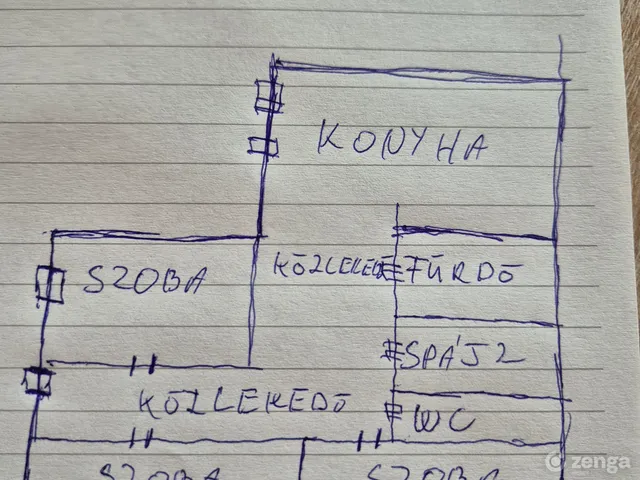 KONYHA
SZOBA
KÖZLEKEDŐ
FÜRDŐ
SPÁJZ
KÖZLEKEDŐ
WC
SZOBA
SZOBA
zenga